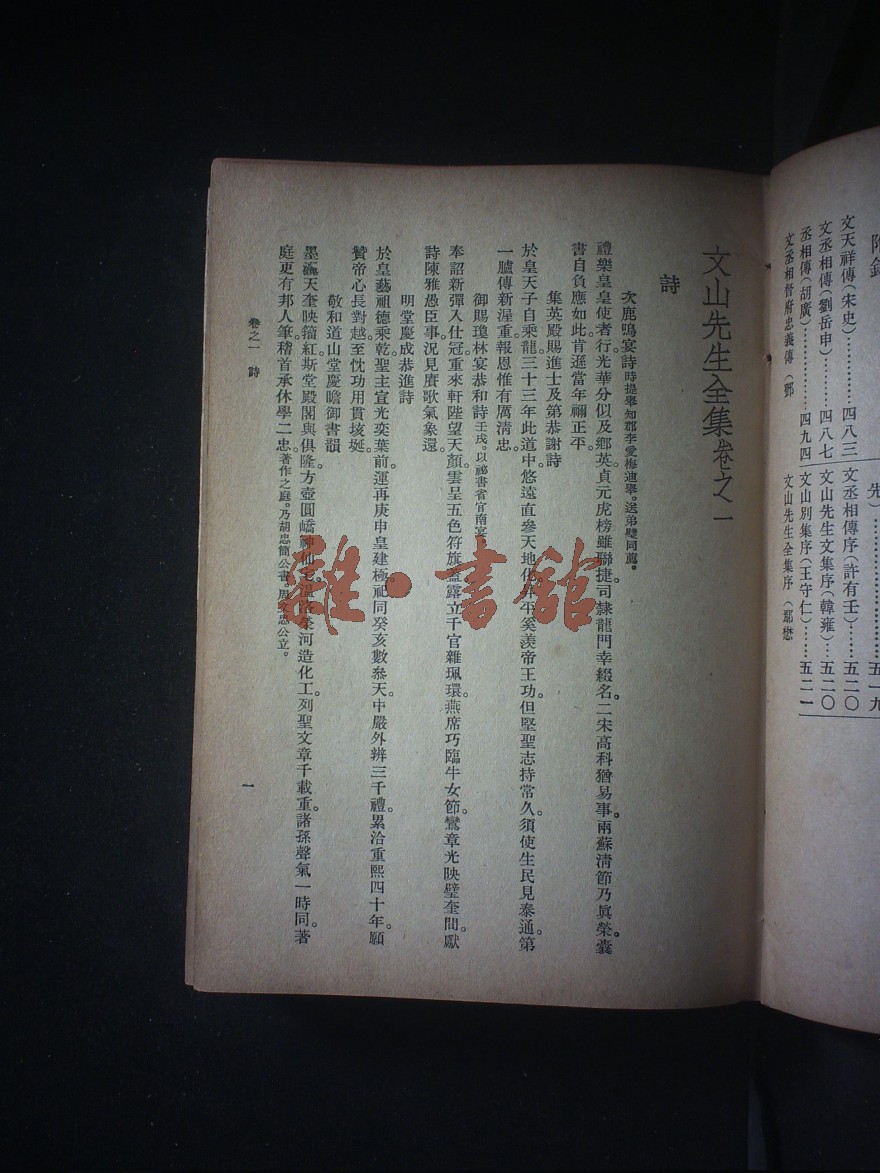 附錄
文天祥傳(宋史)…………四八三
文丞相傳(劉岳申)…………四八七
丞相傳(胡廣)…………四九四
文丞相督府忠義傳(鄧
先)……五一九
文丞相傳序(許有壬)……五二〇
文山先生文集序(韓雍)……五二〇
文山別集序(王守仁)……五二一
文山先生全集序(鄢懋
文山先生全集卷之一
詩
次鹿鳴宴詩時提舉知郡李愛梅迪舉。送弟璧同薦。
禮樂皇皇使者行。光華分似及鄉英。貞元虎榜雖聯捷。司隸龍門幸綴名。二宋高科猶易事。兩蘇清節乃眞榮。囊
書自負應如此。肯遜當年禰正平。
集英殿賜進士及第恭謝詩
於皇天子自乘龍。三十三年此道中。悠遠直參天地化。升平奚羨帝王功。但堅聖志持常久。須使生民見泰通。第
一臚傳新渥重。報恩惟有厲清忠。
御賜瓊林宴恭和詩壬戌。以祕書省官南宴
奉詔新彈入仕冠。重來軒陛望天顏。雲呈五色符旗蓋。露立千官雜珮環。燕席巧臨牛女節。鸞章光映璧奎間。獻
詩陳雅愚臣事。況見賡歌氣象還。
明堂慶成恭進詩
於皇藝祖德乘乾。聖主宣光奕葉前。運再庚申皇建極。祀同癸亥數參天。中嚴外辨三千禮。累洽重熙四十年。願
贊帝心長對越。至忱功用貫垓埏。
敬和道山堂慶瞻御書韻
墨天奎映籀紅。斯堂殿閣與俱隆。方壺圓嶠神仙宅。溫洛榮河造化工。列聖文章千載重。諸孫聲氣一時同。著
庭更有邦人筆。稽首承休學二忠。著作之庭。乃胡忠簡公書。周文忠公立。
卷之一 詩
一
雜·書館